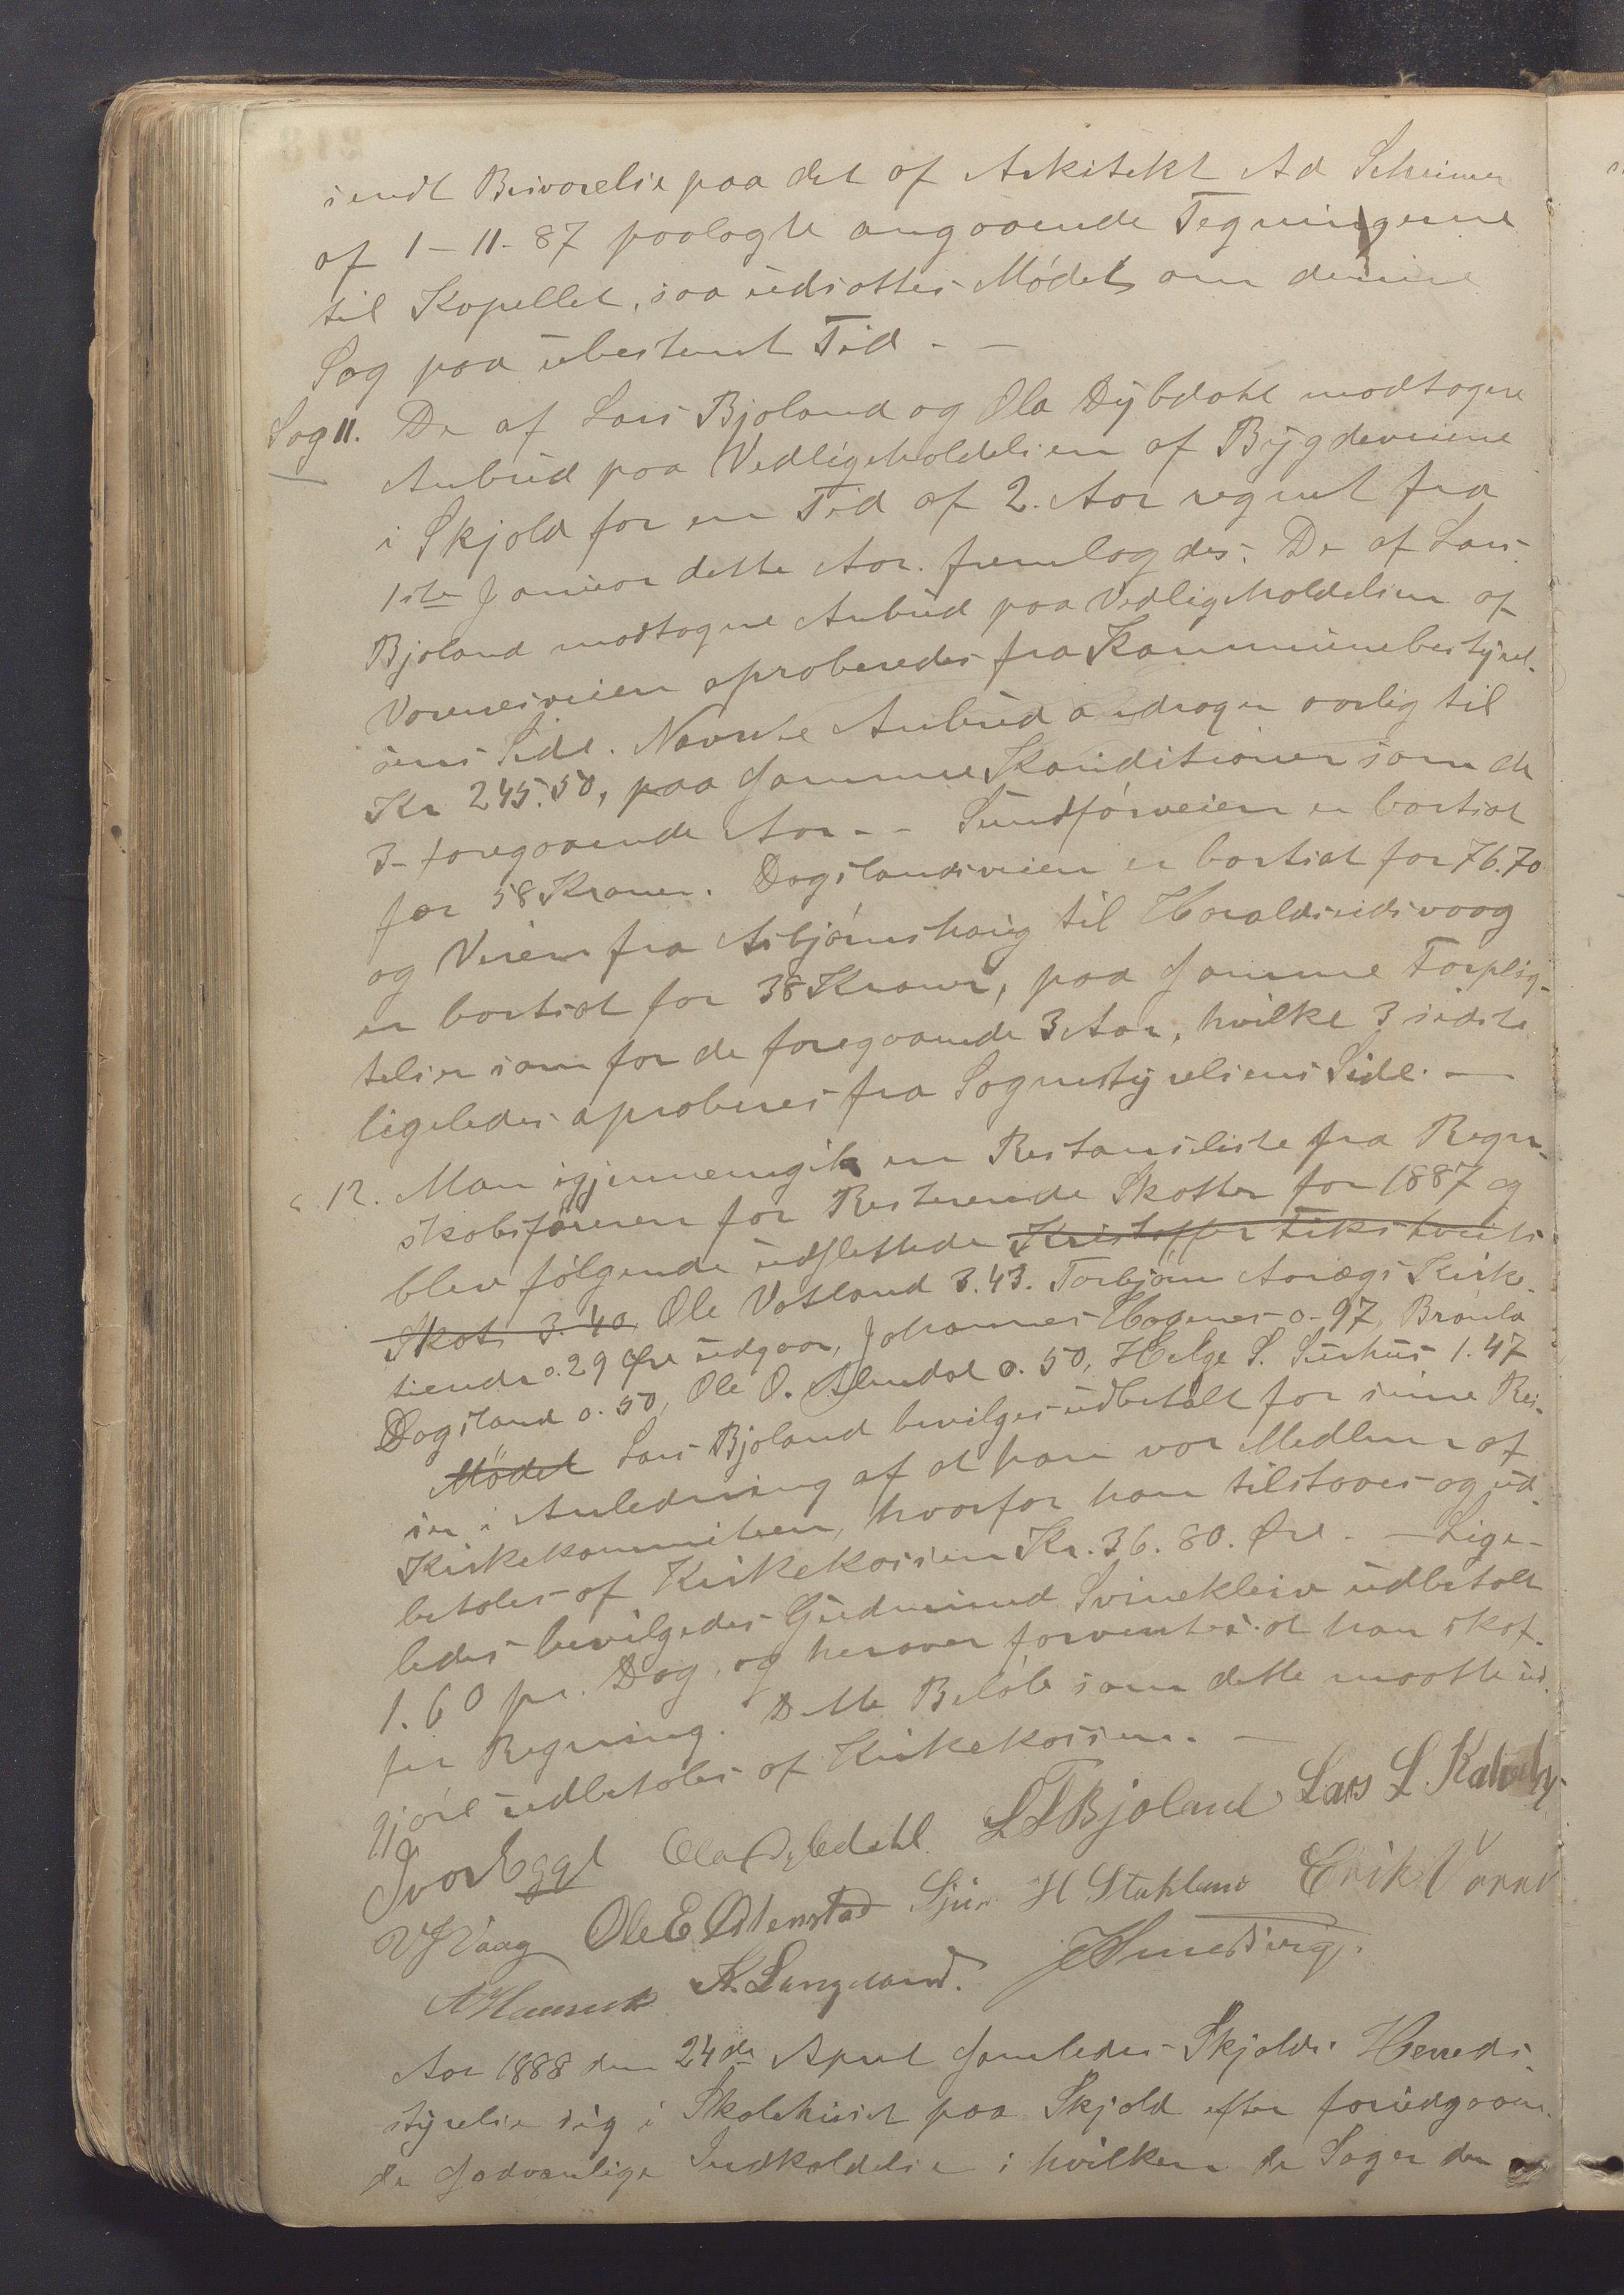 sendt Besvarelse paa det af Arkitekt Ad Scheimer
af 1-11-87 paalagte angaaende Tegningerne
til Kapellet, saa udsattes Mødet om denne
Sag paa ubestemt Tid. -
Sag 11. De af Lars Bjoland og Ola Dybdahl modtagne
Anbud paa Vedligeholdelsen af Bygdeveiene
i Skjold for en Tid af 2. Aar regnet fra
1ste Januar dette Aar. fremlagdes; De af Lars
Bjoland modtagne Anbud paa Vedligeholdelsen af
Vormesveien aproberedes fra Kommunebestyrel-
sens Side. Nævnte Anbud andrager aarlig til
Kr 245.50, paa samme Konditioner som de
3- foregaaende Aar. - Sundførveien er bortsat
for 58 Kroner. Dagslandsveien er bortsat for 76.70
og Veien fra Asbjørnshaug til Haraldseidsvaag
er bortsat for 38 Kroner, paa samme Forplig-
telser som for de foregaaende 3 Aar, hvilke 3 sidste
ligeledes aproberes fra Sognestyrelsens Side. -
" 12. Man igjennemgik en Restanseliste fra Regn-
skabsføreren for Resterende Skatter for 1887 og
blev følgende udslettede Kristoffer
Skats 3.40, Ole Vatland 3.43. Torbjørn Aarægs Kirke-
tiende 0.29 Øre udgaar, Johannes Hagenes 0.97,
Dagsland 0.50, Ole O. Alendal 0.50, Helge S. Surhus 1.47
Mødet Lars Bjoland bevilges udbetalt for sine Rei-
ser i Anledning af at han var Medlem af
Kirkekommiteen, hvorfor han tilstaaes og ud-
betales af Kirkekassen Kr. 36.80. Øre. - Lige-
ledes bevilgedes Gudmund Svinekleiv udbetalt
1.60 pr. Dag, og herover forventes at han skaf-
fer Regning. Dette Beløb som dette maatte ud-
gjøre udbetales af Kirkekassen. -
Ivar Egge Ola Dybdahl L T Bjoland Lars L.
V J Vaag Ole E Østenstad Sjur H Stakland Erik
K. Langeland.
Aar 1888 den 24de April samledes Skjolds Herreds-
styrelse sig i Skolehuset paa Skjold efter forudgaaen-
de sædvanlige Indkaldelse i hvilken de Sager der